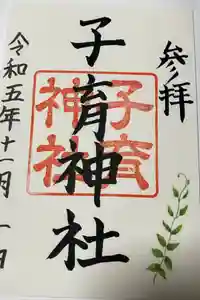 参拝
子育神社
子育神社
令和五年十一月一日